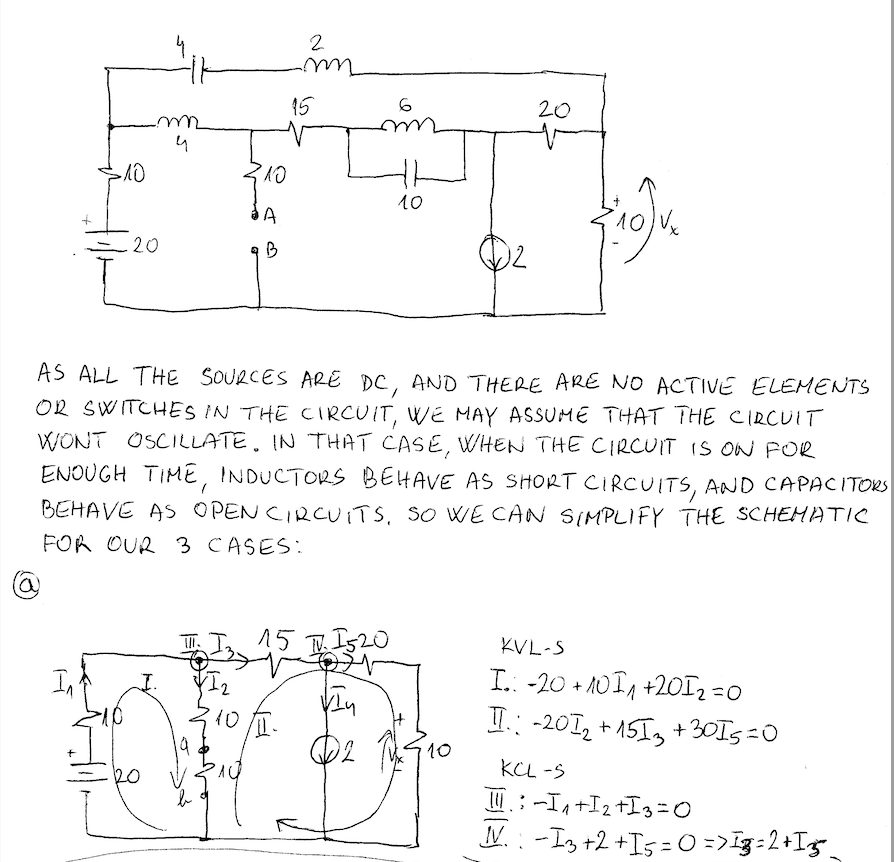 4 2
15 6 20
4
10 10 10 + 10 Vx
A
+ 20 B 2 -
AS ALL THE SOURCES ARE DC, AND THERE ARE NO ACTIVE ELEMENTS
OR SWITCHES IN THE CIRCUIT, WE MAY ASSUME THAT THE CIRCUIT
WONT OSCILLATE. IN THAT CASE, WHEN THE CIRCUIT IS ON FOR
ENOUGH TIME, INDUCTORS BEHAVE AS SHORT CIRCUITS, AND CAPACITORS
BEHAVE AS OPEN CIRCUITS. SO WE CAN SIMPLIFY THE SCHEMATIC
FOR OUR 3 CASES:
a
III. I₃ 15 IV. I₅ 20
I₁ I. I₂ I₄
10 10 II. +
a 2 Vx 10
+ 20 10 -
b
KVL-S
I.: -20 + 10I₁ + 20I₂ = 0
II.: -20I₂ + 15I₃ + 30I₅ = 0
KCL-S
III.: -I₁ + I₂ + I₃ = 0
IV.: -I₃ + 2 + I₅ = 0 => I₃ = 2 + I₅